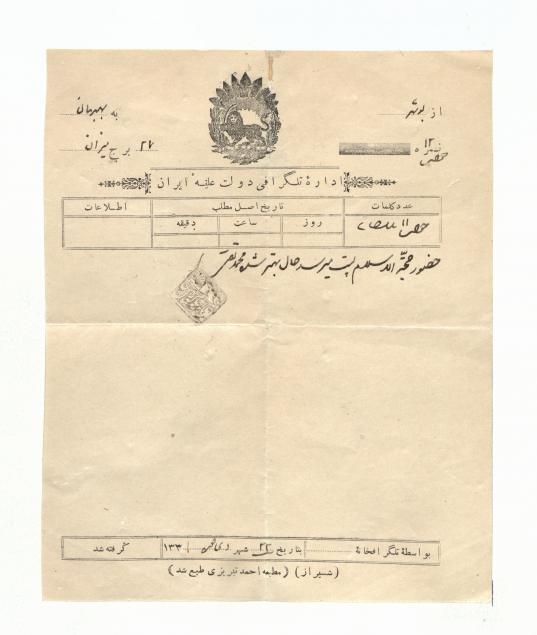 از بوشهر
به بهبهان
نمره ۱۲
۲۷ برج میزان
ادارهٔ تلگرافی دولت علیّهٔ ایران
عدد کلمات تاریخ اصل مطلب اطلاعات
روز ساعت دقیقه
۱۱
حضور حجة الاسلام پست میرسد حال بهتر شده محمد تقی
بواسطهٔ تلگرافخانهٔ بتاریخ ۲۲ شهر ۱۳۳ گرفته شد
(شیراز) (مطبعه احمد تبریزی طبع شد)